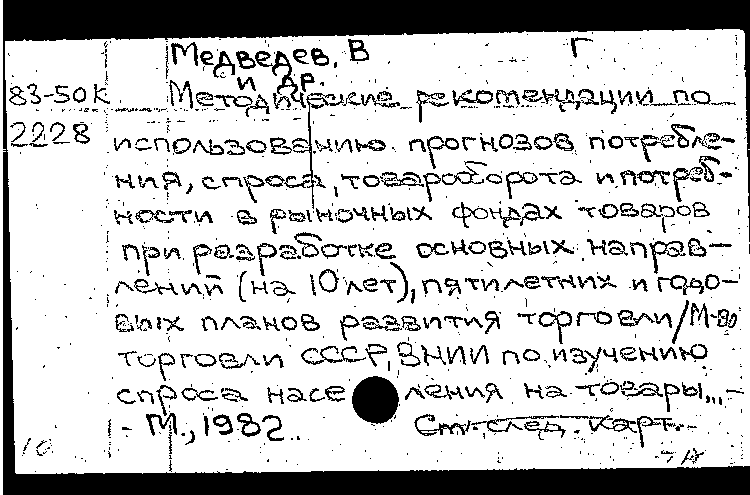 Медведев, В Г
и др.
83-50К Методические рекомендации по
2228 использованию прогнозов потребле-
ния, спроса, товарооборота и потреб-
ности в рыночных фондах товаров
при разработке основных направ-
лений (на 10 лет), пятилетних и годо-
вых планов развития торговли/М-во
торговли СССР, ВНИИ по изучению
спроса населения на товары...-
- М., 1982. См. след. карт.
10